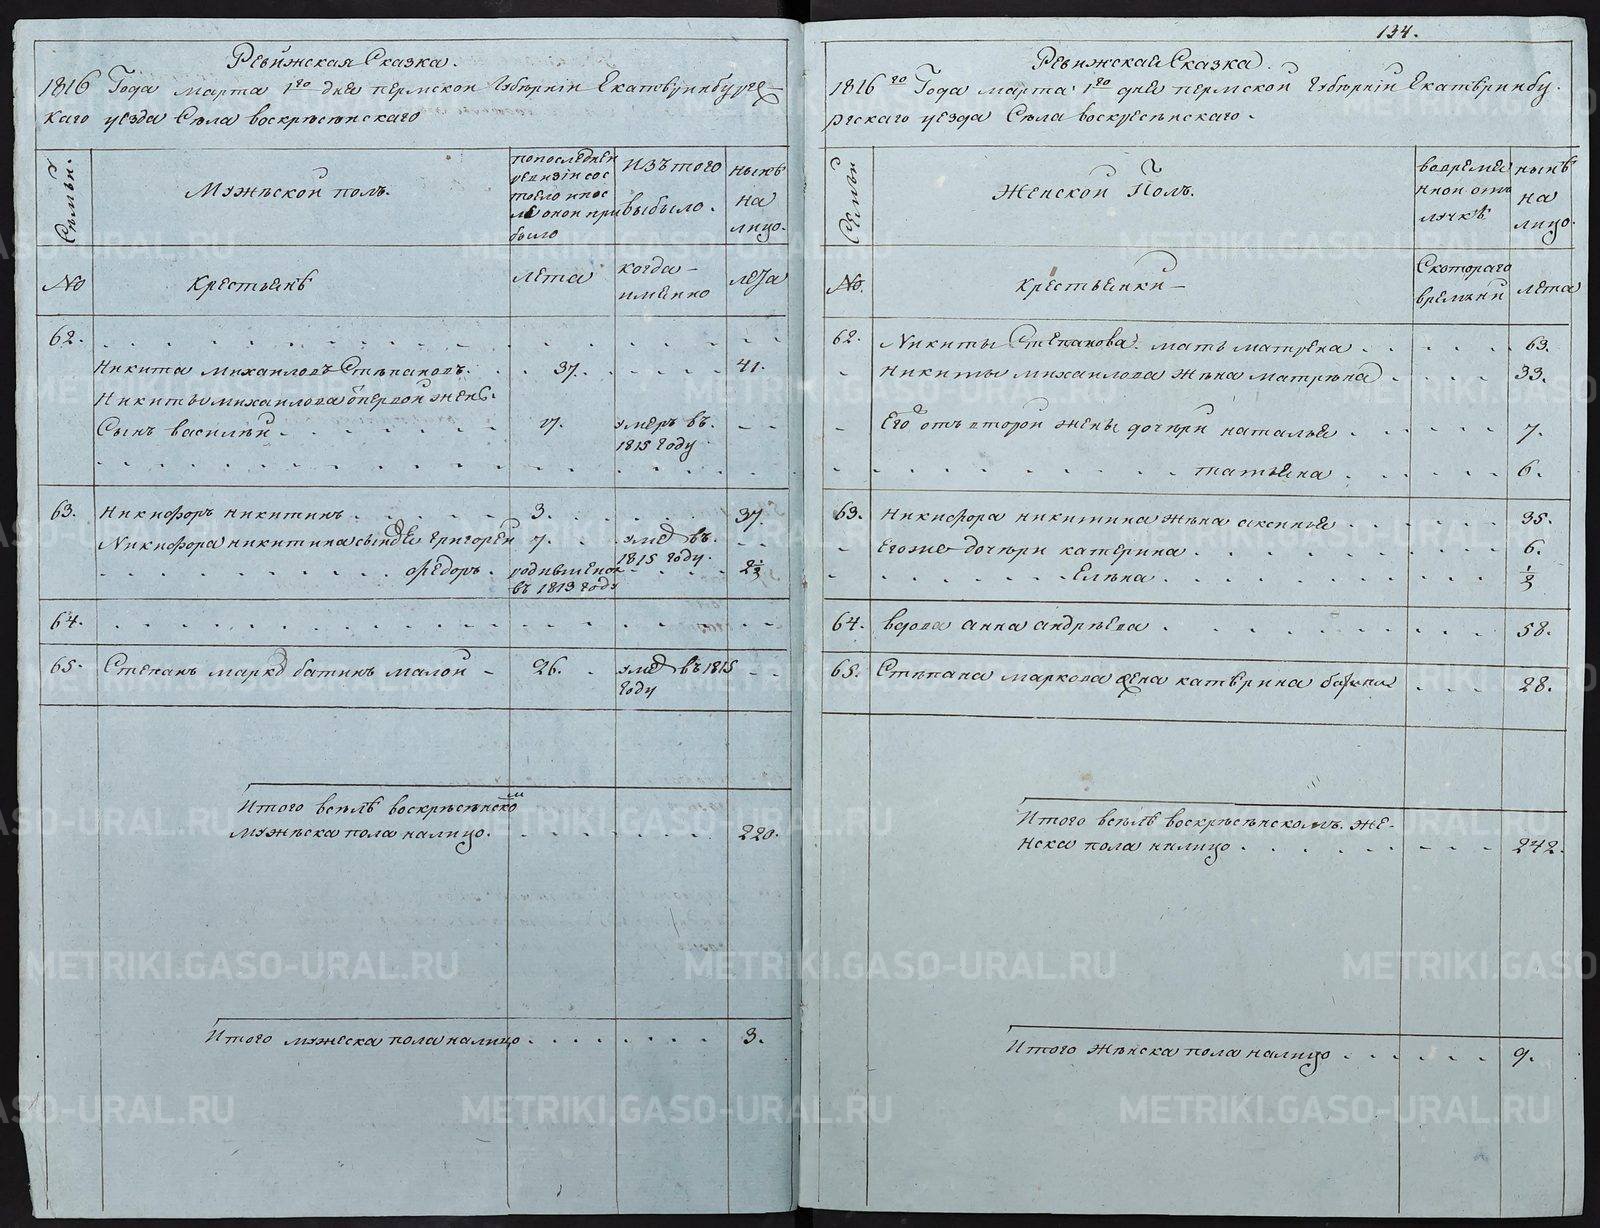 134.
Ревижская Сказка.
1816 Года марта 1го дня пермской губернiи Екатеринбургс-
каго уезда Села воскресенскаго
Семьи.
Мужеской полъ.
попоследней
ревизiи сос
тояло и пос
ле оной при
было
изътого
выбыло.
ныне
на
лицо.
No
крестьяне
лета
когда
имянно
лета
62.
Никита михаиловъ Степановъ. 37. 41.
Никиты михаилова отпервой жены.
Сынъ василей 7. умеръ въ
1815 году
63. Никифоръ никитинъ 3. 37.
Никифора никитина сыновья григорей 7. умеръ въ
1815 году.
федоръ. родившейся 2 1/2
въ 1813 году
64.
65. Степанъ марковъ батинъ малой 26. умеръ въ 1815
году
Итого вселе воскресенском
мужеска пола налицо. 220.
Итого мужеска пола налицо 3.
Ревижская Сказка.
1816го Года марта 1го дня пермской губернiи Екатеринбу-
ргскаго уезда Села воскресенскаго.
Семьи
Женской Полъ.
вовремен
нной отлу
лучке
ныне
на
лицо.
No.
крестьянки
Скотораго
времени
лета
62. Никиты Степанова мать матрена 63.
Никиты михаилова жена матрена 33.
Его отъ второй жены дочери наталья 7.
татьяна 6.
63. Никифора никитина жена аксинья 35.
Егоже дочери катерина 6.
Елена 1/2
64. вдова анна андреева 58.
65. Степана маркова жена катерина 28.
Итого вселе воскресенскомъ же-
нска пола налицо 242.
Итого женска пола налицо 9.
METRIKI.GASO-URAL.RU